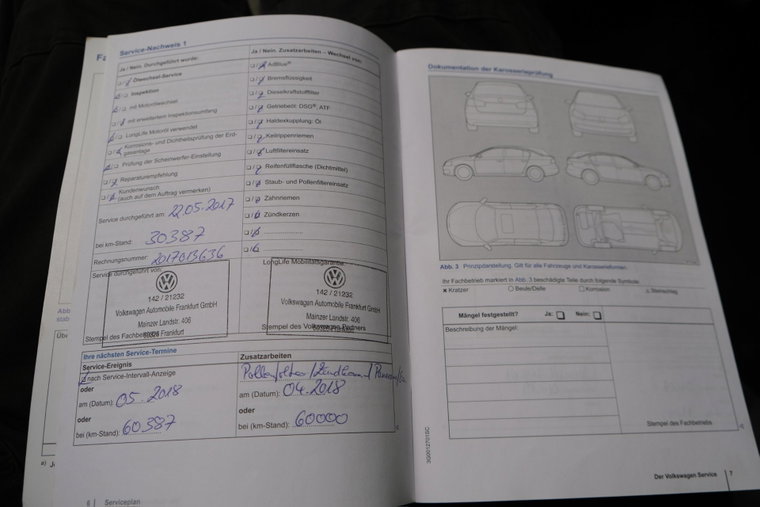 Fa
Service-Nachweis 1
Ja / Nein. Durchgeführt wurde:
Ölwechsel-Service
Inspektion
mit Motorölwechsel
mit erweitertem Inspektionsumfang
LongLife Motoröl verwendet
Korrosions- und Dichtheitsprüfung der Erd-
gasanlage
Prüfung der Scheinwerfer-Einstellung
Reparaturempfehlung
Kundenwunsch
(auch auf dem Auftrag vermerken)
Service durchgeführt am: 22.05.2017
bei km-Stand: 30387
Rechnungsnummer: 2017013636
Service durchgeführt von:
142 / 21232
Volkswagen Automobile Frankfurt GmbH
Mainzer Landstr. 406
60326 Frankfurt
Stempel des Fachbetriebs
Ja / Nein. Zusatzarbeiten – Wechsel von:
AdBlue®
Bremsflüssigkeit
Dieselkraftstofffilter
Getriebeöl: DSG®, ATF
Haldexkupplung: Öl
Keilrippenriemen
Luftfiltereinsatz
Reifenfüllflasche (Dichtmittel)
Staub- und Pollenfiltereinsatz
Zahnriemen
Zündkerzen
LongLife Mobilitätsgarantie
142 / 21232
Volkswagen Automobile Frankfurt GmbH
Mainzer Landstr. 406
60326 Frankfurt
Stempel des Volkswagen Partners
Ihre nächsten Service-Termine
Service-Ereignis
nach Service-Intervall-Anzeige
oder
am (Datum): 05.2018
oder
bei (km-Stand): 60387
Zusatzarbeiten
am (Datum): 04.2018
oder
bei (km-Stand): 60000
6 Serviceplan
Dokumentation der Karosserieprüfung
Abb. 3 Prinzipdarstellung. Gilt für alle Fahrzeuge und Karosserieformen.
Ihr Fachbetrieb markiert in Abb. 3 beschädigte Teile durch folgende Symbole:
× Kratzer ○ Beule/Delle □ Korrosion △ Steinschlag
Mängel festgestellt? Ja: Nein:
Beschreibung der Mängel:
Stempel des Fachbetriebs
3G0012701SC
Der Volkswagen Service 7